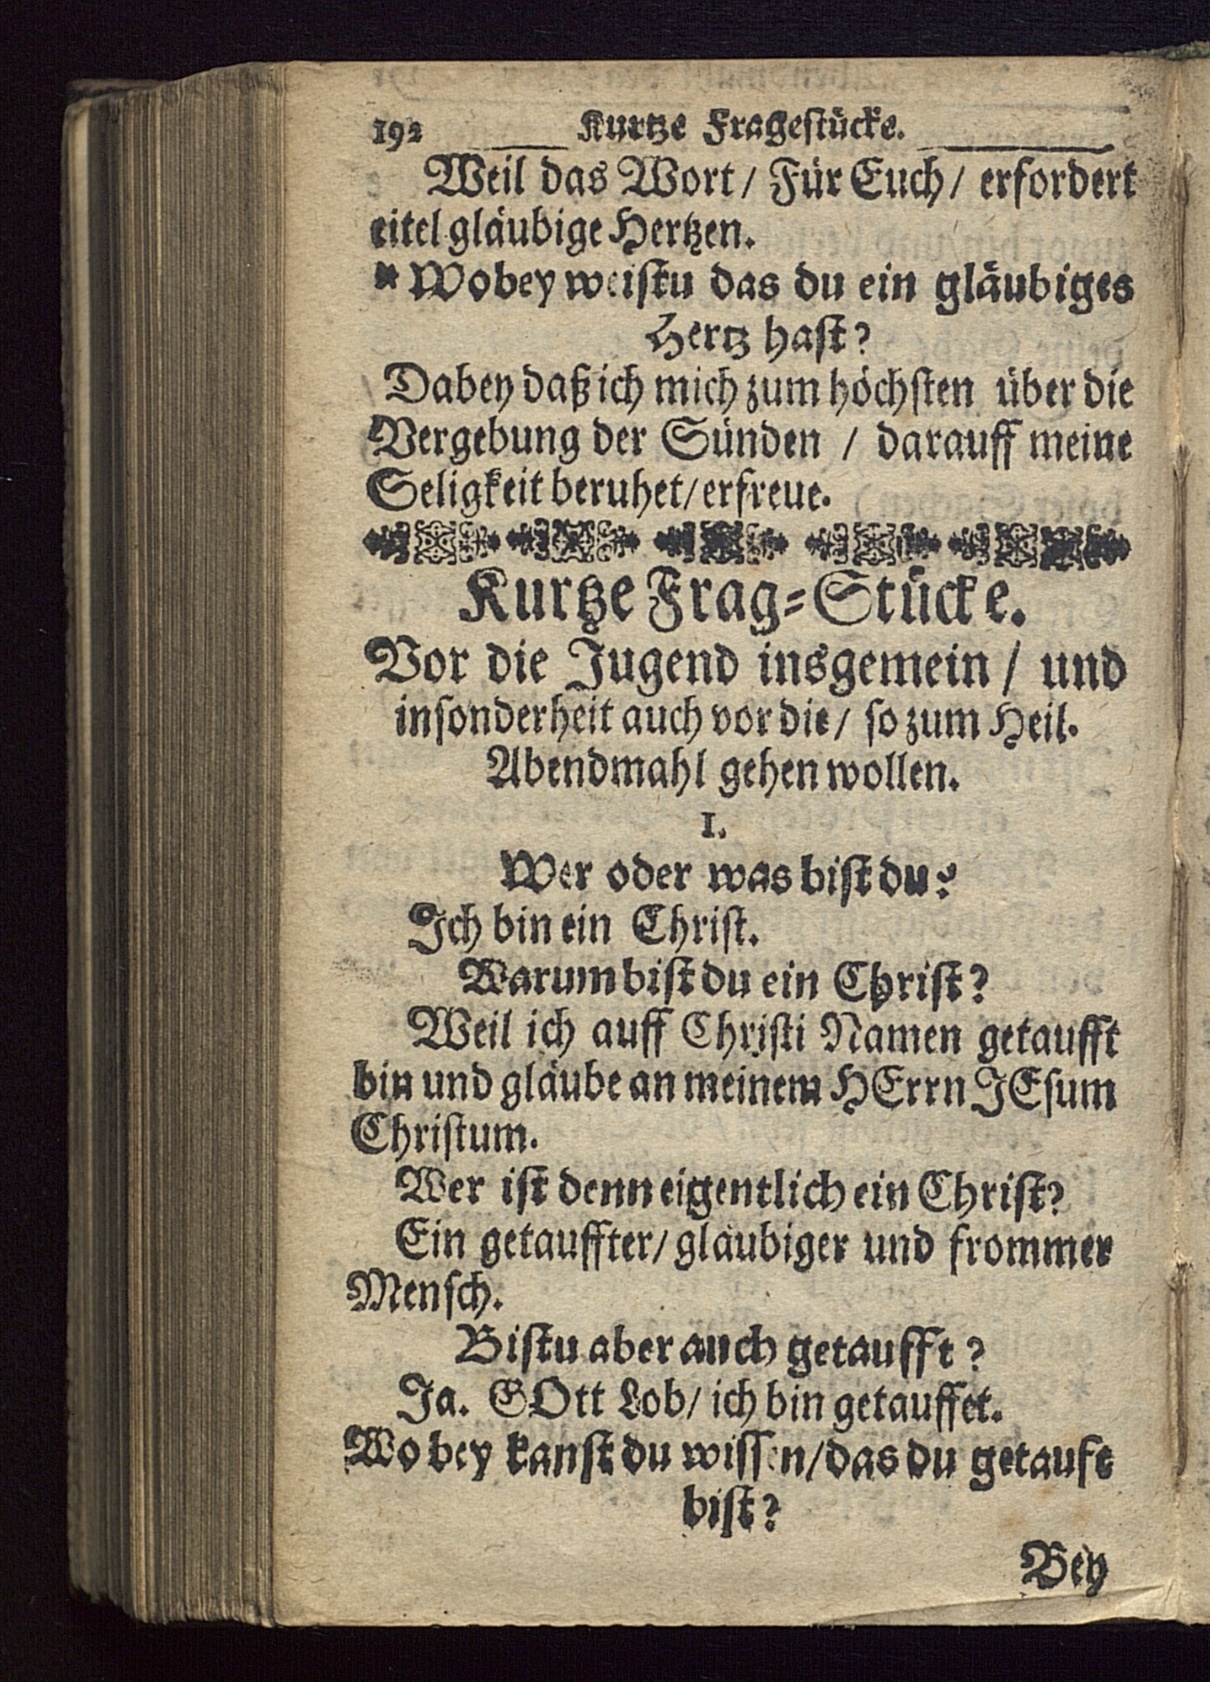 192 Kurtze Fragestücke.
Weil das Wort / Für Euch / erfordert
eitel gläubige Hertzen.
* Wobey weistu das du ein gläubiges
Hertz hast?
Dabey daß ich mich zum höchsten über die
Vergebung der Sünden / darauff meine
Seligkeit beruhet / erfreue.
Kurtze Frag-Stücke.
Vor die Jugend insgemein / und
insonderheit auch vor die / so zum Heil.
Abendmahl gehen wollen.
I.
Wer oder was bist du?
Ich bin ein Christ.
Warum bist du ein Christ?
Weil ich auff Christi Namen getaufft
bin und gläube an meinem HErrn JEsum
Christum.
Wer ist denn eigentlich ein Christ?
Ein getauffter / gläubiger und frommer
Mensch.
Bistu aber auch getaufft?
Ja. GOtt Lob / ich bin getauffet.
Wobey kanst du wissen / das du getauft
bist?
Bey